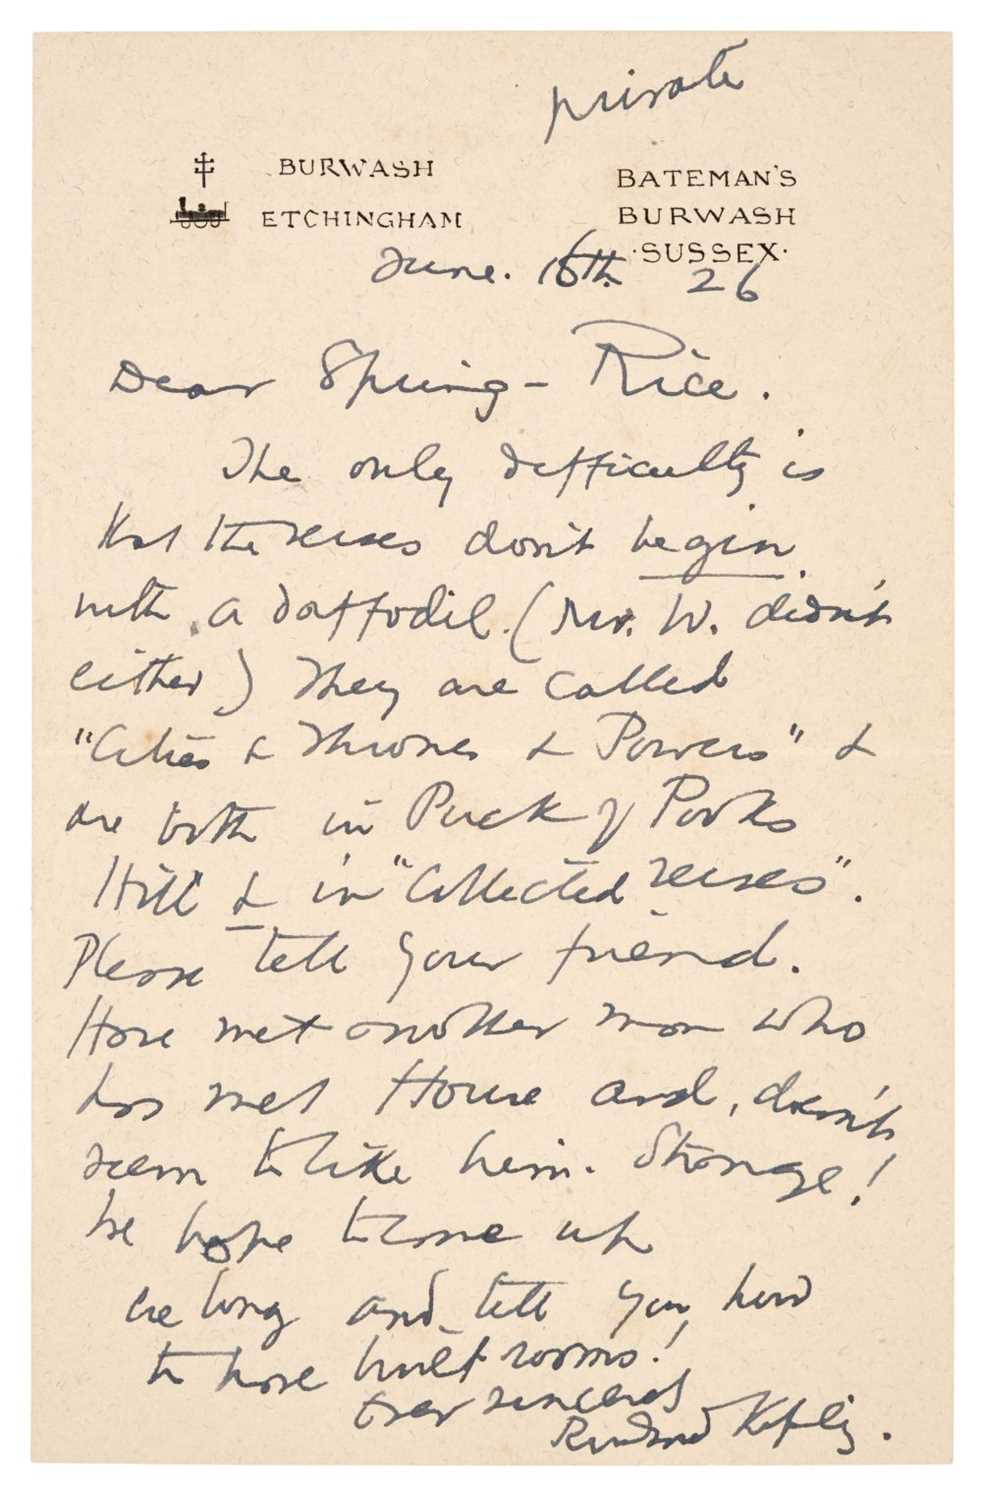 private
BURWASH
ETCHINGHAM
BATEMAN'S
BURWASH
·SUSSEX·
June. 16th. 26
Dear Spring-Rice.
The only difficulty is
that the verses don't begin
with a daffodil. (Mr. W. didn't
either) They are called
"Cities & Thrones & Powers" &
are both in Puck of Pooks
Hill & in "Collected verses".
Please tell your friend.
Have met another man who
has met House and, doesn't
seem to like him. Strange!
We hope to come up
ere long and tell you how
to have built rooms!
Ever sincerely
Rudyard Kipling.